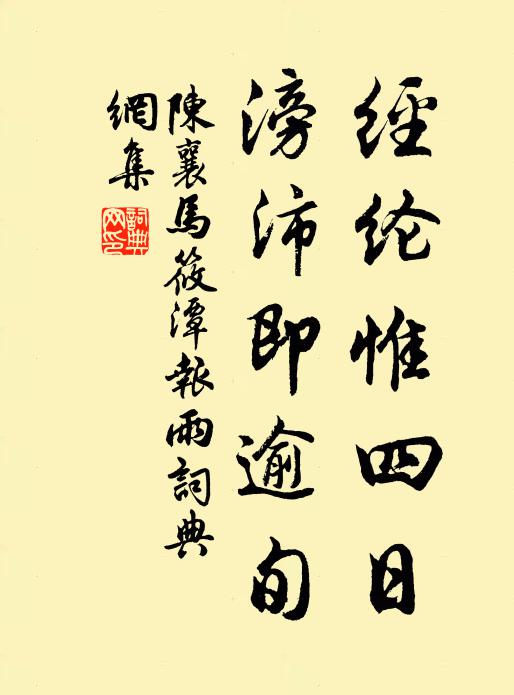 經纶惟四日
滂沛即逾旬
陳襄馬筱潭報雨詞典
網集
詞典
网印